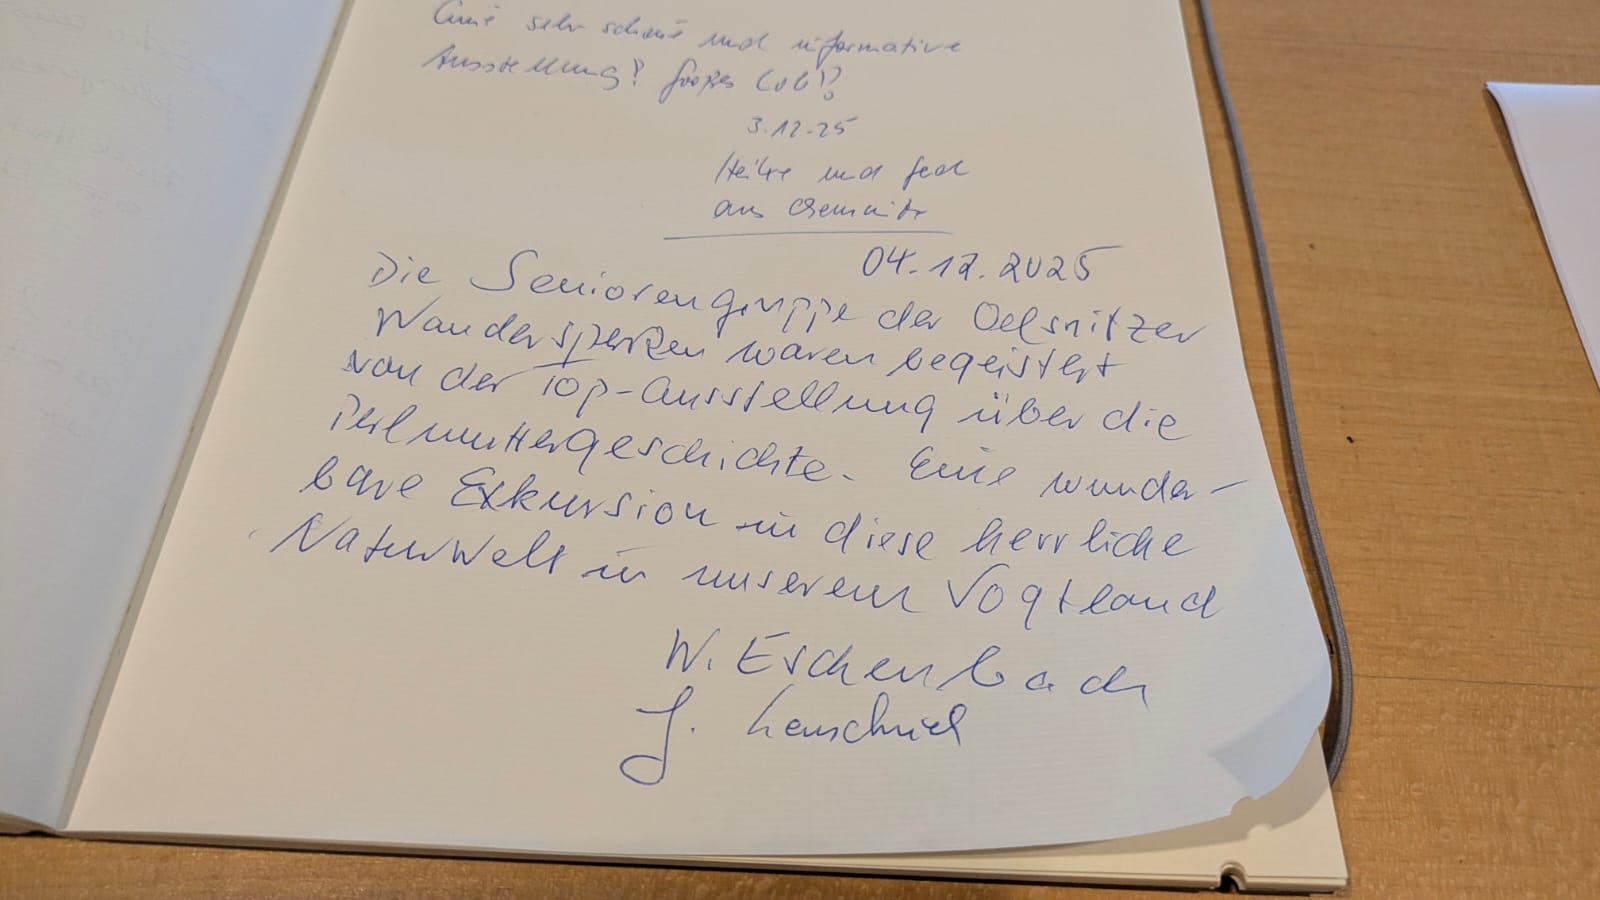 Eine sehr schöne und informative
Ausstellung! Großes Lob!
3.12.25
Heike und
aus Chemnitz
04.12.2025
Die Seniorengruppe der Oelsnitzer
Wandersperken waren begeistert
von der Top-Ausstellung über die
Perlmuttergeschichte. Eine wunder-
bare Exkursion in diese herrliche
Naturwelt in unserem Vogtland
W. Eschenbach
J.